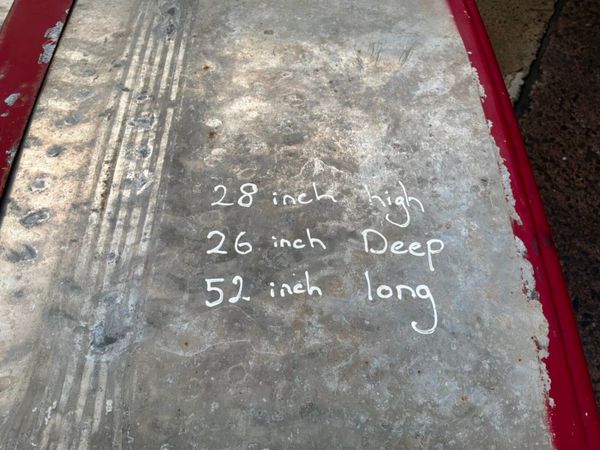 28 inch high
26 inch Deep
52 inch long